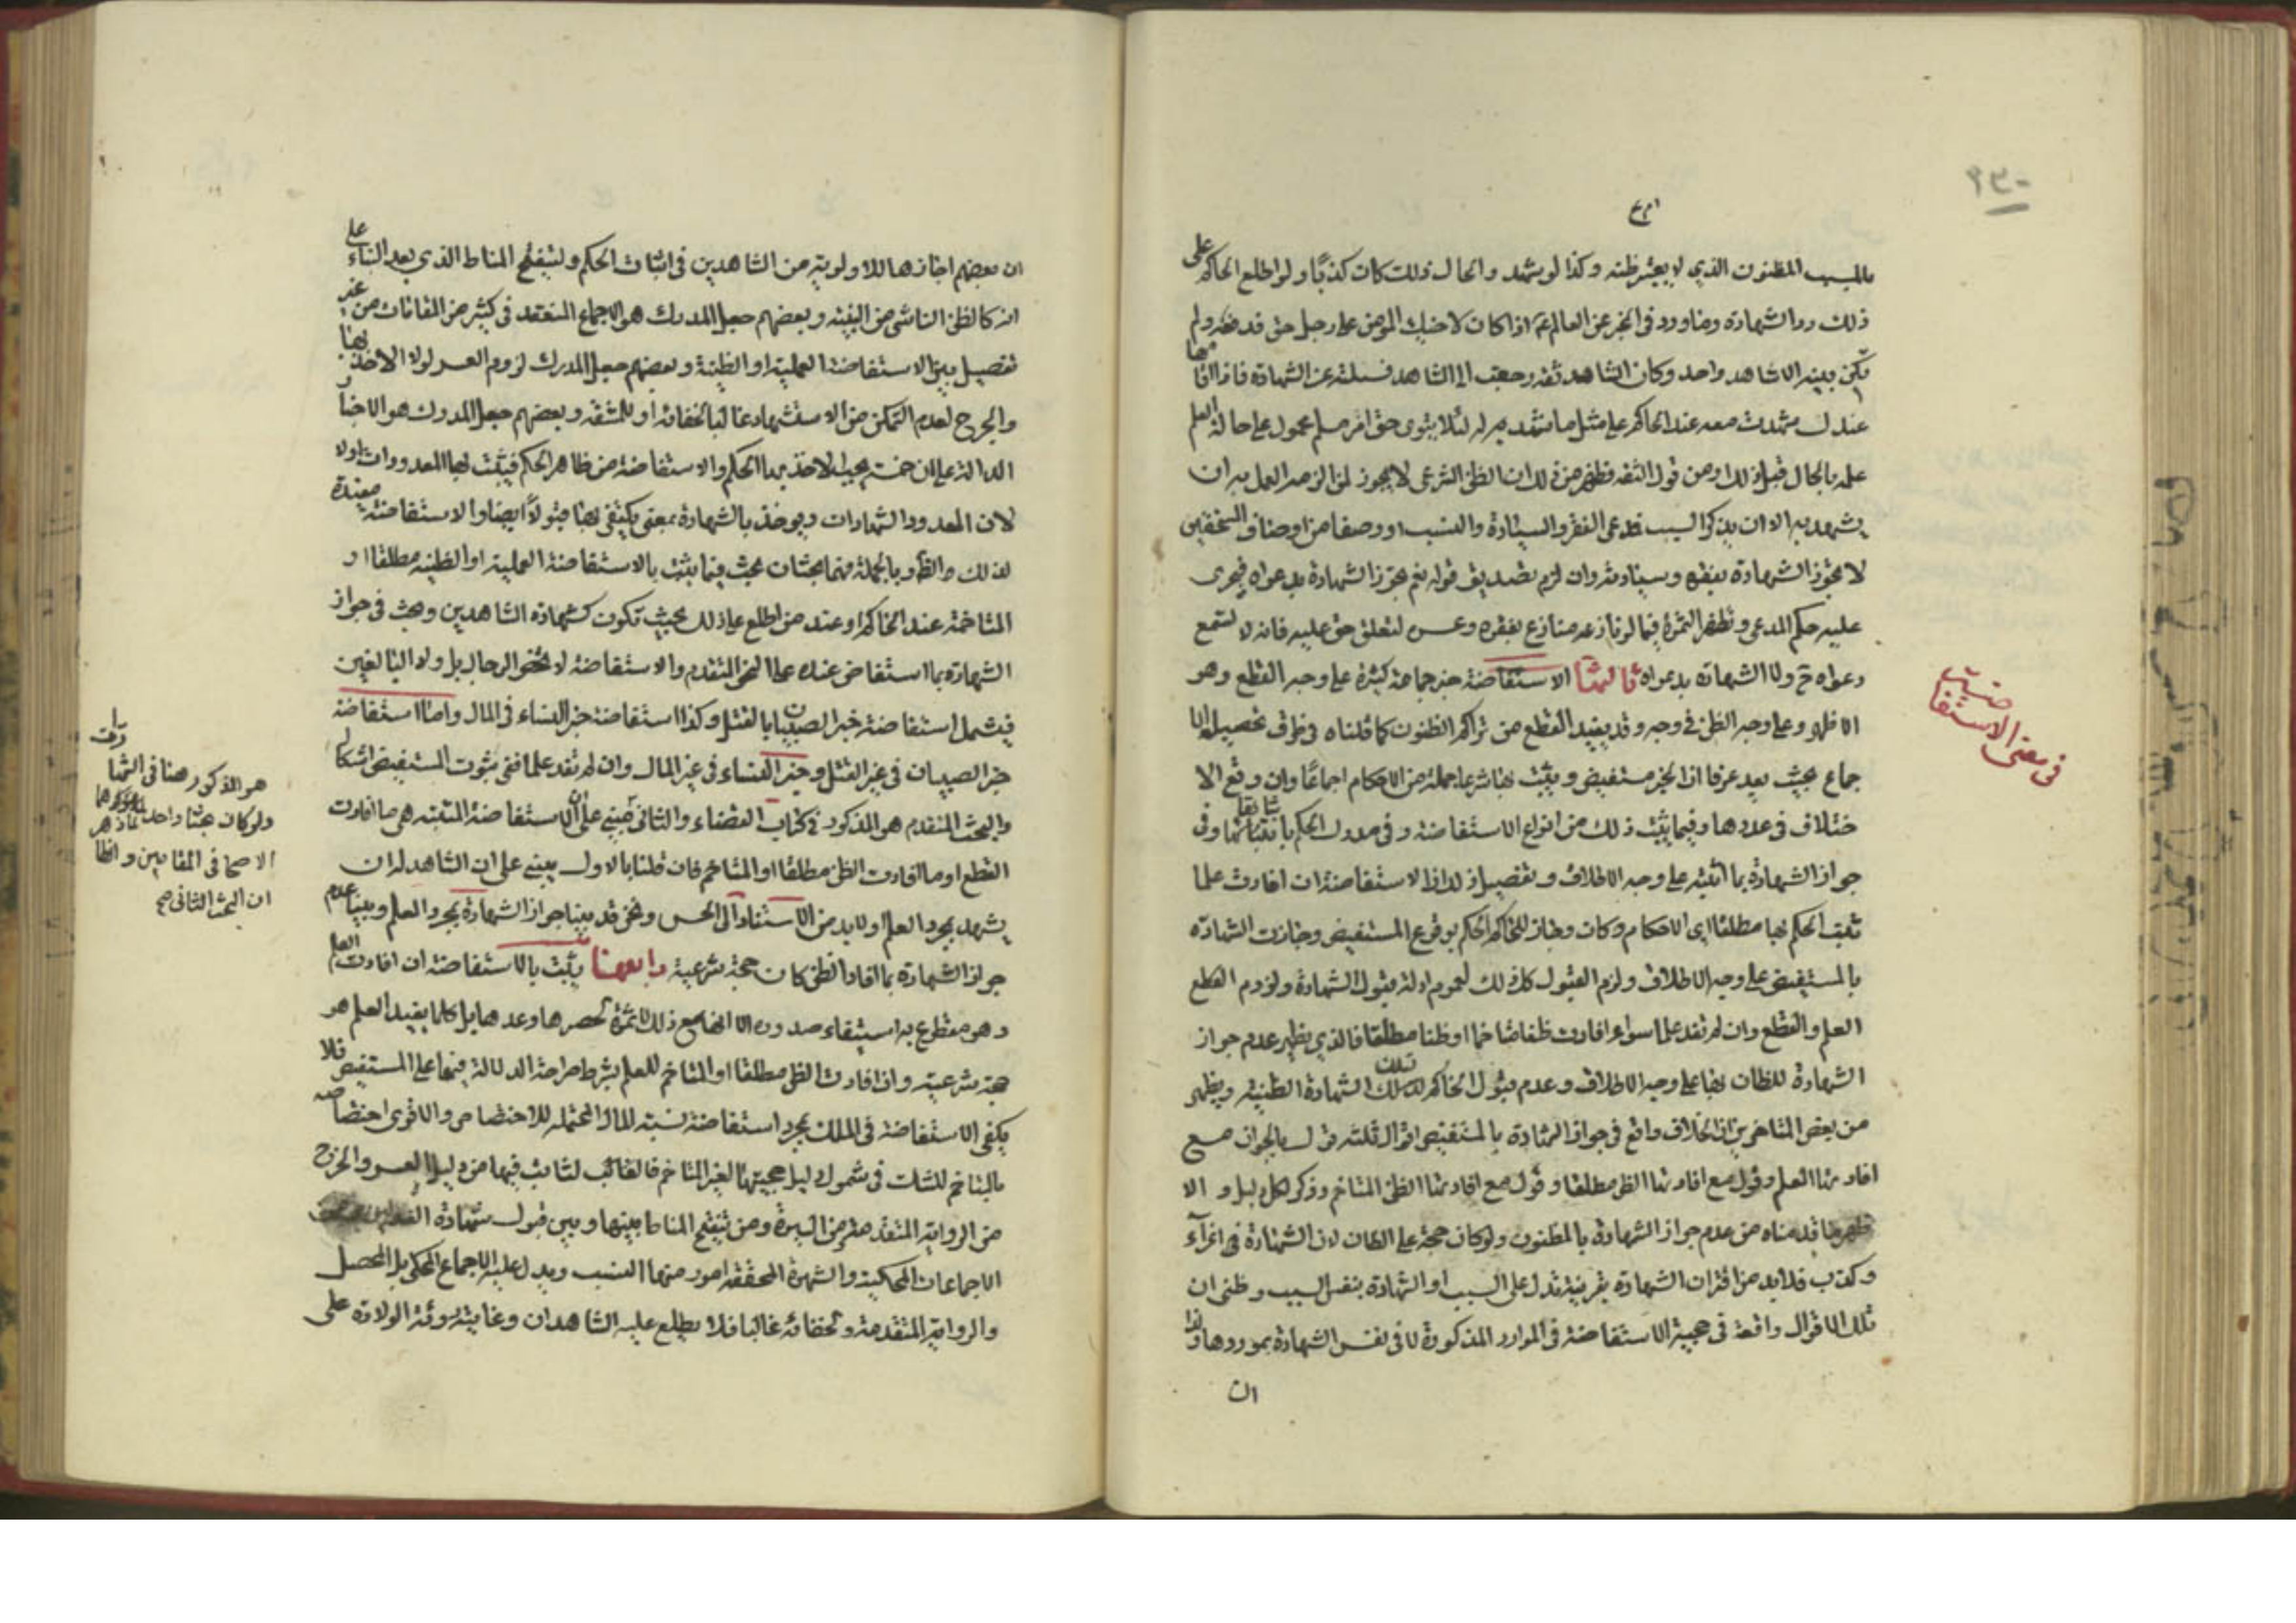 بالسبب المظنون الذي لا يعتبر ظنه وكذا لو يشهد والحال ذلك كان كذبًا ولو اطلع الحاكم على
ذلك رد الشهادة وما ورد في الخبر عن العالم ع اذا كان لاخيك المؤمن على رجل حق قد فعه ولم
يكن بينة الا شاهد واحد وكان الشاهد ثقة رجعت الى الشاهد فسئلته عن الشهادة فاذا اقامها
عندك شهدت معه عند الحاكم على مثل ما شهد به له لئلا يتوى حق امرء مسلم محمول على حالة العلم
علمه بالحال قبل ذلك ومن قول الثقة فظهر من ذلك ان الظن الشرعي لا يجوز لمن الزمه العمل به ان
يشهد به الا ان يذكر السبب فمدعى الفقر والسيادة والنسب او وصفا من اوصاف المستحقين
لا يجوز الشهادة بفقره وسيادته وان لزم تصديق قوله نعم يجوز الشهادة بدعواه فيجرى
عليه حكم المدعى وتظهر الثمرة فيما لو نازعه منازع بفقره وعسره لتعلق حق عليه فانه لا تسمع
دعواه ح ولا الشهادة بدعواه ثالثها الاستفاضة خبر جماعة كثيرة على وجه القطع وهو
الاظهر وعلى وجه الظن في وجه وقد يفيد القطع من تراكم الظنون كما قلناه في طرق تحصيل الا
جماع بحيث يعد عرفا ان الخبر مستفيض ويثبت بها شرعا جملة من الاحكام اجماعًا وان وقع الا
ختلاف في عددها وفيما يثبت ذلك من انواع الاستفاضة وفي مدرك الحكم باثباتها وفي
جواز الشهادة بما اثبته على وجه الاطلاق وتفصيل ذلك ان الاستفاضة ان افادت علما
ثبت الحكم بها مطلقا اي الاحكام وكان وجاز للحاكم الحكم بوقوع المستفيض وجازت الشهادة
بالمستفيض على وجه الاطلاق ولزم القبول كل ذلك لعموم ادلة قبول الشهادة ولزوم القطع
العلم والقطع وان لم تفد علما سواء افادت ظنا متاخما او ظنا مطلقا فالذي يظهر عدم جواز
الشهادة للظان بها على وجه الاطلاق وعدم قبول الحاكم لتلك الشهادة الظنية ويظهر
من بعض المتاخرين ان الخلاف واقع في جواز الشهادة بالمستفيض اقوال ثلثة قول بالجواز مع
افادتها العلم وقول مع افادتها الظن مطلقا وقول مع افادتها الظن المتاخم وذكر لكل دليل و الا
ظهر ما قدمناه من عدم جواز الشهادة بالمظنون ولو كان حجة على الظان لان الشهادة في اغراء
وكذب فلا بد من اقتران الشهادة بقرينة تدل على السبب او الشهادة بنفس السبب وظني ان
تلك الاقوال واقعة في حجية الاستفاضة في الموارد المذكورة لا في نفس الشهادة بموردها
ان
في معنى الاستفاضة
ان بعضهم اجازها للاولوية من الشاهدين في اثبات الحكم ولتنقيح المناط الذي بعد البناء على
انه كالظن الناشي من البينة وبعضهم جعل المدرك هو الاجماع المنعقد في كثير من المقامات من غير
تفصيل بين الاستفاضة العلمية او الظنية وبعضهم جعل المدرك لزوم العسر لولا الاخذ بها
والحرج لعدم التمكن من الاستشهاد غالبا لخفائه او للمشقة وبعضهم جعل المدرك هو الاخبار
الدالة على ان خمسة يجب الاخذ بها الحكم والاستفاضة من ظاهر الحكم فيثبت بها المعدودات اولا
لان المعدود الشهادات ويوخذ بالشهادة بمعنى يكتفى بها قبولًا ايضا والاستفاضة مفيدة
لذلك والظن وبالجملة فهما بحثان بحث فيما يثبت بالاستفاضة العلمية او الظنية مطلقا او
المتاخمة عند الحاكم او عند من اطلع على ذلك بحيث تكون كشهادة الشاهدين وبحث في جواز
الشهادة بما استفاض عنده على النحو المتقدم والاستفاضة لا تخص الرجال بل ولا البالغين
فيشمل استفاضة خبر الصبيان بالقتل وكذا استفاضة خبر النساء في المال واما استفاضة
خبر الصبيان في غير القتل وخبر النساء في غير المال وان لم تفد علما ففي ثبوت المستفيض اشكال
والبحث المتقدم هو المذكور في كتاب القضاء والثاني مبني على ان الاستفاضة المثبتة هي ما افادت
القطع او ما افادت الظن مطلقا او المتاخم فان قلنا بالاول يبنى على ان الشاهد له ان
يشهد بمجرد العلم او لا بد من الاستناد الى الحس ونحن قد بينا جواز الشهادة بمجرد العلم وبينا عدم
جواز الشهادة بما افاد الظن كان حجة شرعية رابعها يثبت بالاستفاضة ان افادت العلم
وهو مقطوع به استيفاء
حجة شرعية وان افادت الظن مطلقا او المتاخم للعلم بشرط صراحة الدلالة فيها على المستفيض فلا
يكفى الاستفاضة في الملك بمجرد استفاضة نسبة المال المحتملة للاختصاص والاقوى اختصاصه
بالمتاخم للشك في شمول دليل حجيتها لغير المتاخم فالغائب لثابت فيها من دليل العسر والحرج
من الرواية المتقدمة من السيرة ومن تنقيح المناط بينها وبين قبول شهادة
الاجماعات المحكية والشهرة المحققة امور منها النسب ويدل عليه الاجماع المحكي بل المحصل
والرواية المتقدمة ولخفائه غالبا فلا يطلع عليه الشاهدان وغايته رؤية الولادة على
هو المذكور هنا في الشهادات
ولو كان بحثا واحدا
الاصحاب في المقامين والظاهر
ان البحث الثاني صح